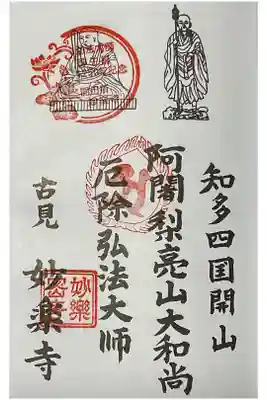 知多四国開山
阿闍梨亮山大和尚
厄除弘法大師
古見 妙楽寺
妙樂